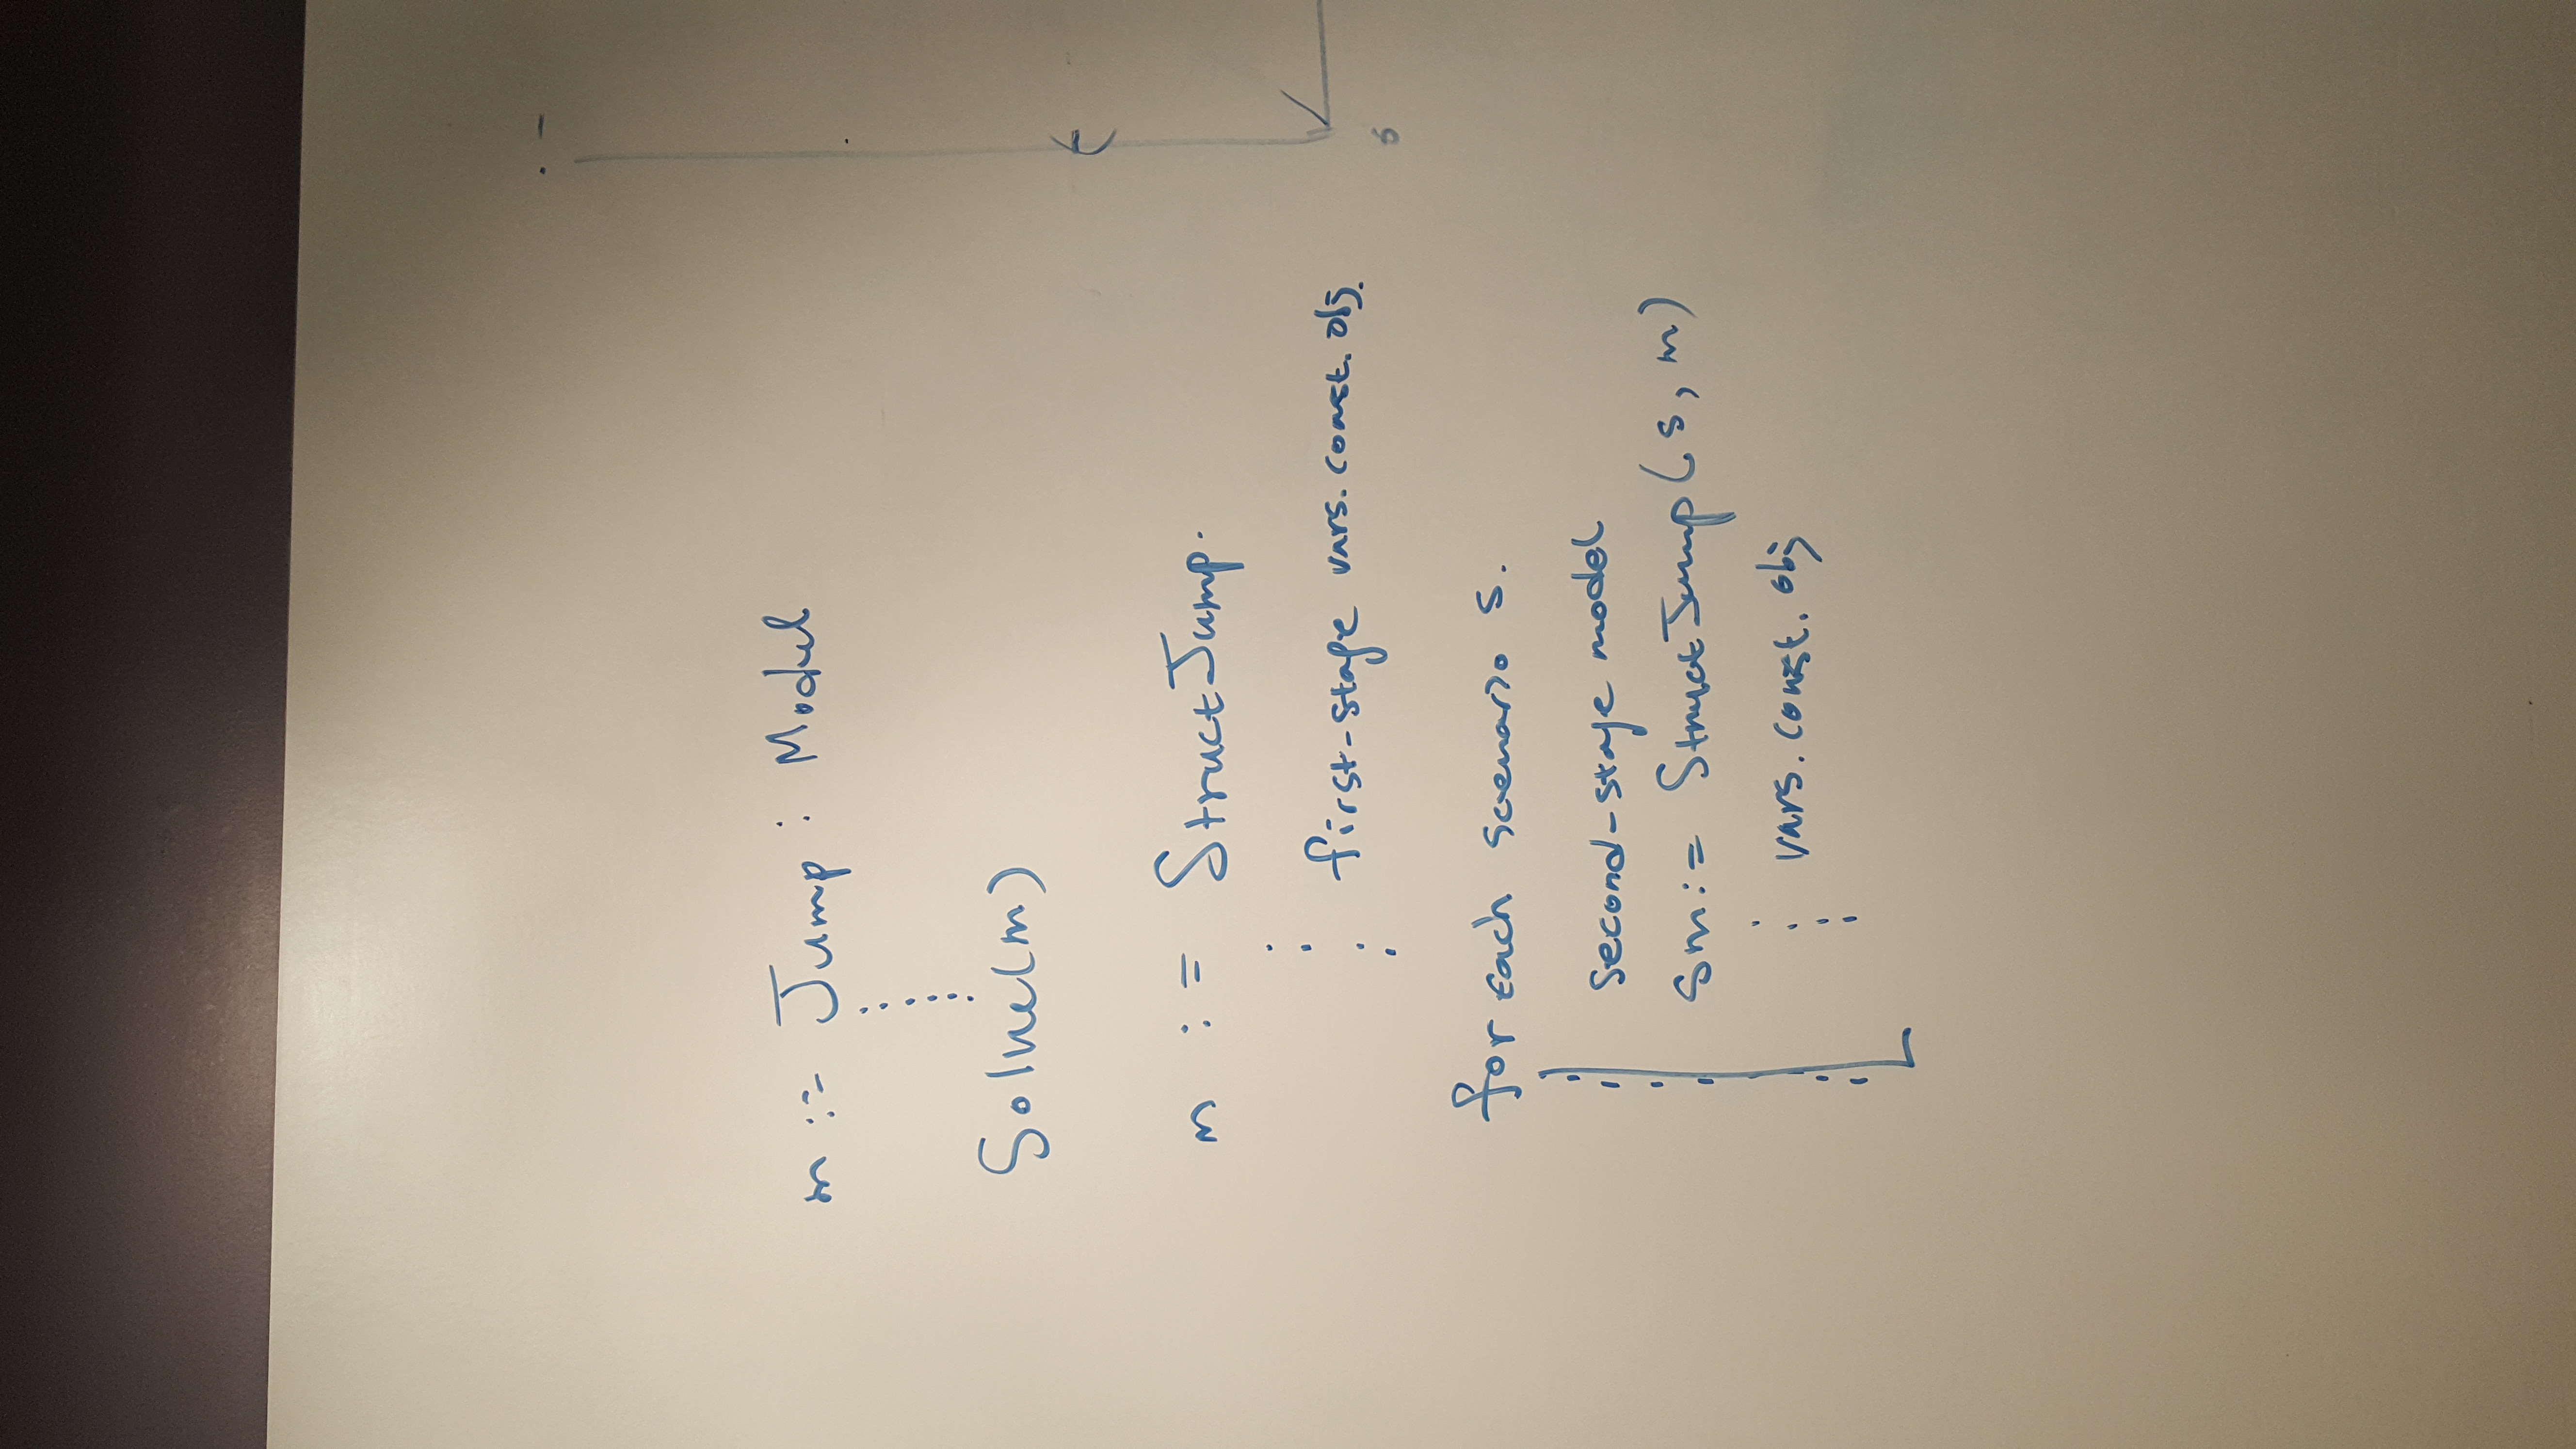 m := Jump : Model
Solve(m)
m := StructJump.
first-stage vars. const. obj.
for each scenario s.
second-stage model
sm := StructJump(s, m)
vars. const. obj